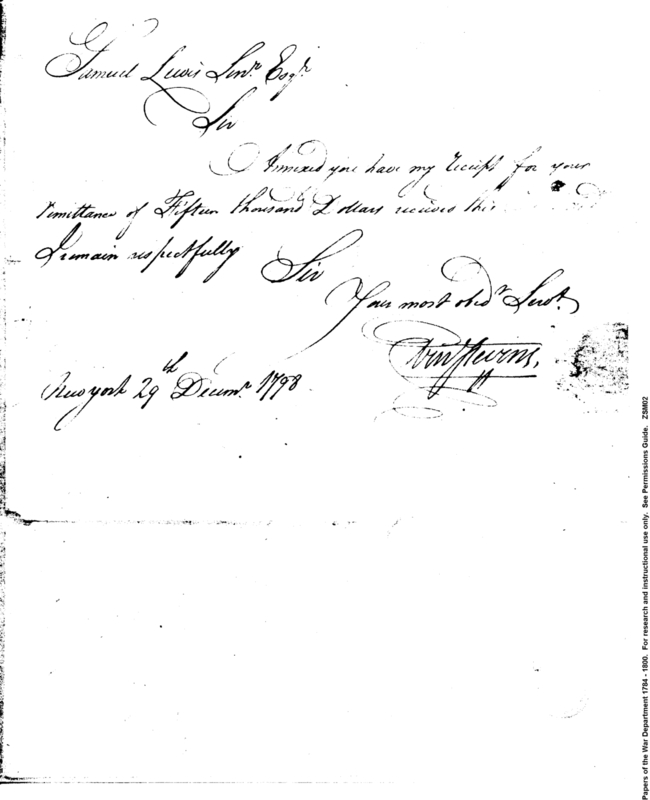 Samuel Lewis Senr. Esqr.
Sir
Annexed you have my receipt for your
remittance of Fifteen thousand Dollars received this
I remain respectfully
Sir
Your most obedt Servt.
New york 29th Decemr. 1798
Papers of the War Department 1784 - 1800. For research and instructional use only. See Permissions Guide. ZSM02